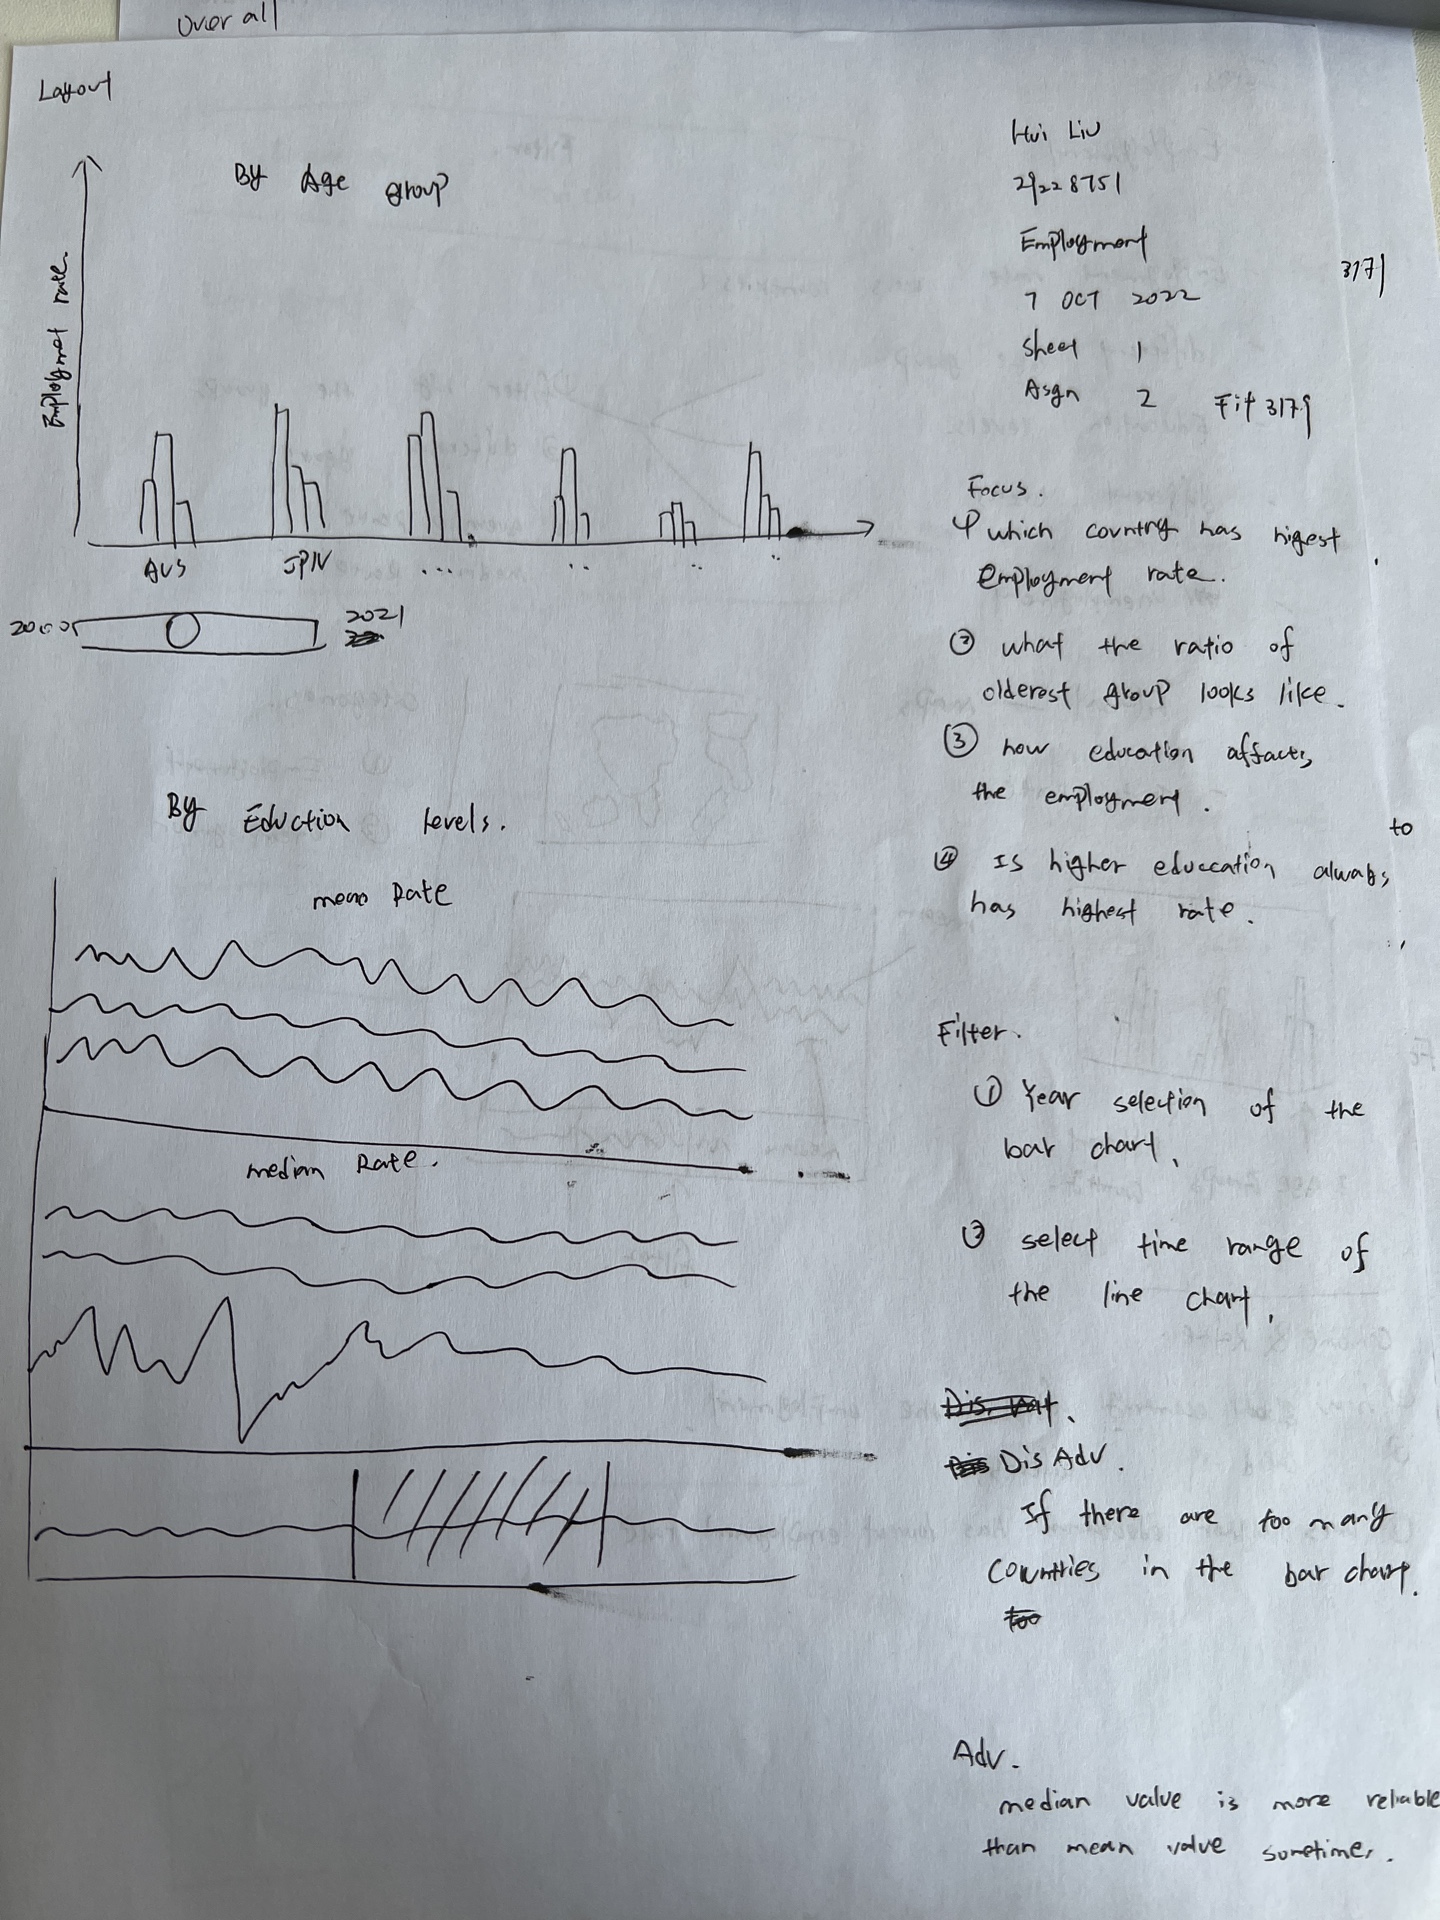 Over all
Layout
By Age group
Employmet rate.
AUS
JPN
....
..
..
..
2000
2021
By Eduction levels.
mean Rate
median Rate.
Hui Liu
29228751
Employment
7 OCT 2022
Sheet 1
Asgn 2 Fit 3179
3171
Focus.
① which country has higest
Employment rate.
② what the ratio of
olderest group looks like.
③ how education affacts
the employment.
to
④ Is higher educcation always
has highest rate.
Filter.
① Year selection of the
bar chart.
② select time range of
the line chart.
Dis Adv.
If there are too many
Countries in the bar chart.
too
Adv.
median value is more reliable
than mean value sometimes.